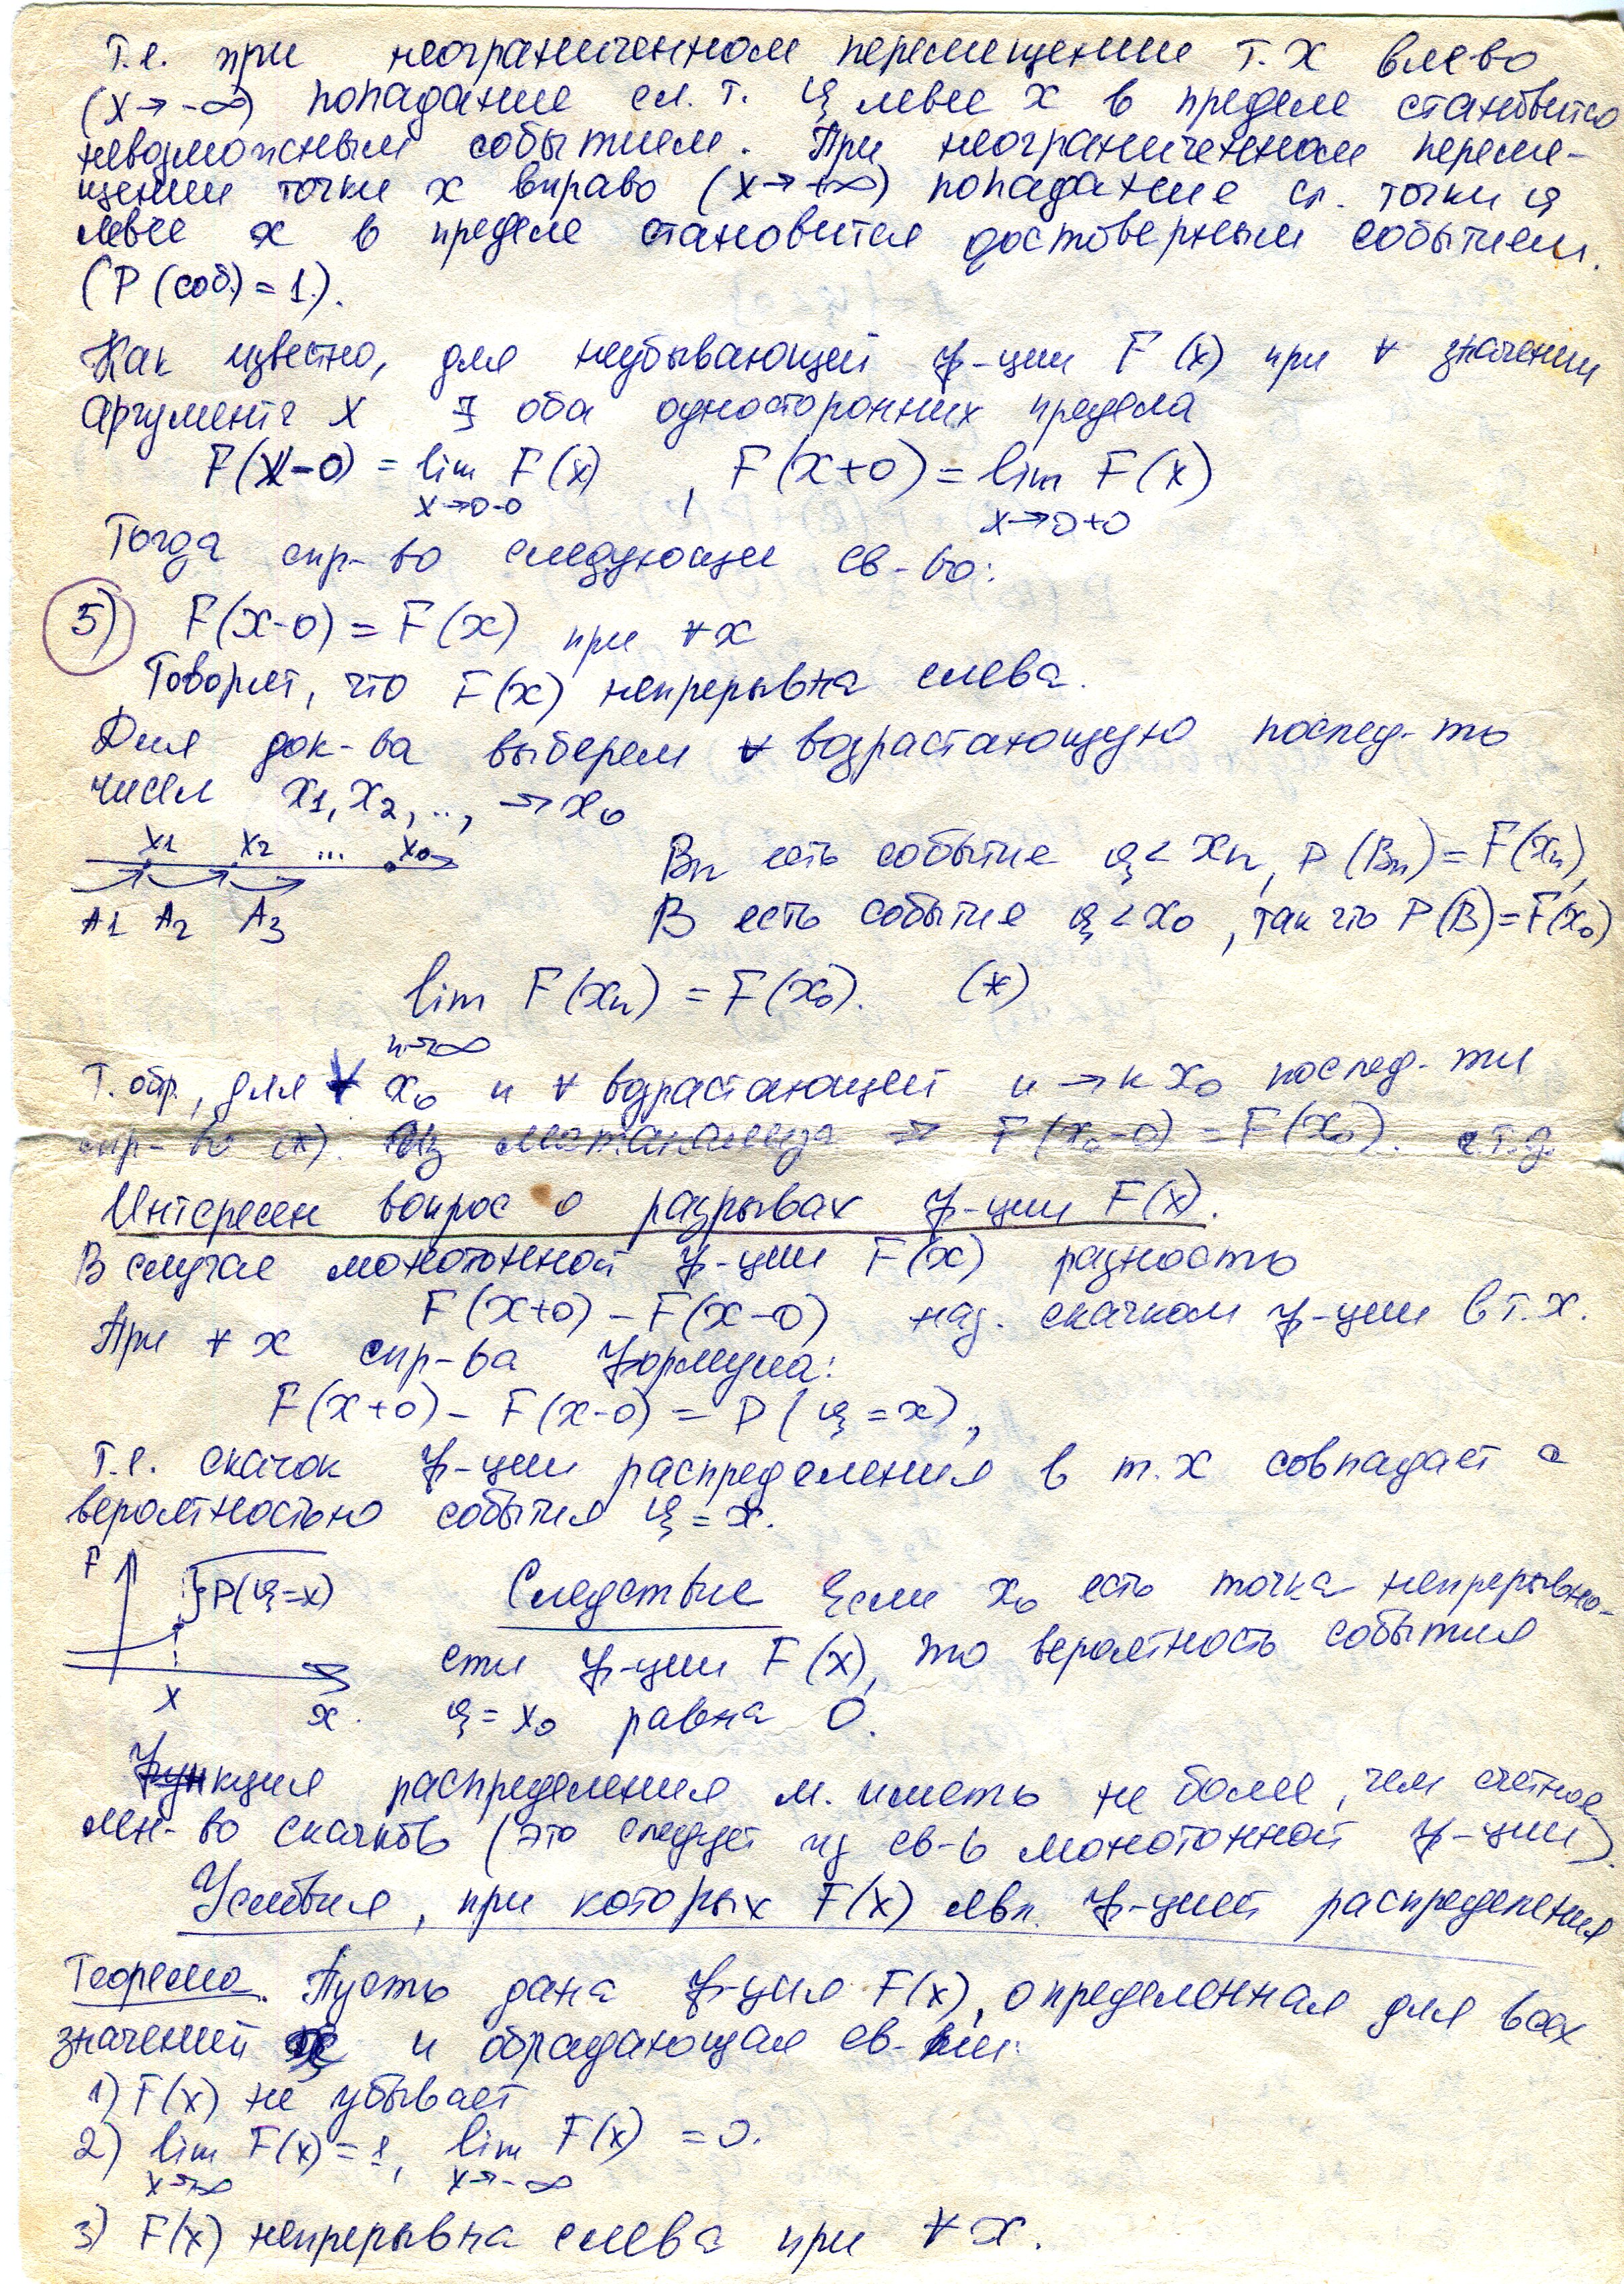 Т.е. при неограниченном перемещении т. х влево
(x → -∞) попадание сл. т. ξ левее x в пределе становится
невозможным событием. При неограниченном переме-
щении точки x вправо (x → +∞) попадание сл. точки ξ
левее x в пределе становится достоверным событием.
(P (соб.) = 1.).
Как известно, для неубывающей ф-ции F (x) при ∀ значении
аргумента X ∃ оба односторонних предела
F(x-0) = lim F(x) , F(x+0) = lim F(x)
x→0-0 x→0+0
Тогда спр-во следующее св-во:
5) F(x-0) = F(x) при ∀ x
Говорят, что F(x) непрерывна слева.
Для док-ва выберем ∀ возрастающую послед-ть
чисел x1, x2, .., → x0
x1 x2 ... x0
Bn есть событие ξ < xn, P (Bn) = F(xn),
A1 A2 A3
B есть событие ξ < x0, так что P(B) = F(x0)
lim F(xn) = F(x0). (*)
n→∞
Т. обр., для ∀ x0 и ∀ возрастающей и → к x0 послед-ти
спр-во (*). Из мат.анализа ⇒ F(x0-0) = F(x0). ч.т.д.
Интересен вопрос о разрывах ф-ции F(x).
В случае монотонной ф-ции F(x) разность
F(x+0) - F(x-0) наз. скачком ф-ции в т. x.
При ∀ x спр-ва формула:
F(x+0) - F(x-0) = P(ξ = x),
т.е. скачок ф-ции распределения в т. x совпадает с
вероятностью события ξ = x.
F
P(ξ=x)
x
x.
Следствие Если x0 есть точка непрерывно-
сти ф-ции F(x), то вероятность события
ξ = x0 равна 0.
Функция распределения м. иметь не более, чем счетное
мн-во скачков (это следует из св-в монотонной ф-ции).
Условия, при которых F(x) явл. ф-цией распределения
Теорема. Пусть дана ф-ция F(x), определенная для всех
значений x и обрадающая св-ми:
1) F(x) не убывает
2) lim F(x) = 1, lim F(x) = 0.
x→∞ x→-∞
3) F(x) непрерывна слева при ∀ x.